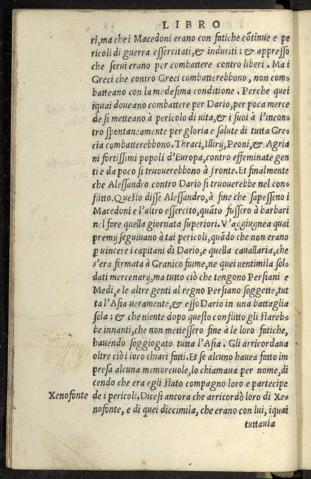 LIBRO
ri, ma che i Macedoni erano con fatiche cõtinue e pe
ricoli di guerra essercitati, & induriti: & appresso
che serui erano per combattere contro liberi. Ma i
Greci che contro Greci combatterebbono, non com
batteano con la medesima conditione. Perche quei
iquai doueano combattere per Dario, per poca merce
de si metteano à pericolo di uita, & i suoi à l'incon
tro spontaneamente per gloria e salute di tutta Gre
cia combatterebbono. Thraci, Illirij, Peoni, & Agria
ni fortissimi popoli d'Europa, contro effeminate gen
ti e da poco si trouerebbono à fronte. Et finalmente
che Alessandro contro Dario si trouerebbe nel con
flitto. Questo disse Alessandro, à fine che sapessero i
Macedoni e l'altro essercito, quãto fussero à barbari
nel fare quella giornata superiori. V'aggiugnea quai
premij seguiuano à tai pericoli, quãdo che non erano
p uincere i capitani di Dario, e quella cauallaria, che
s'era fermata à Granico fiume, ne quei uentimila sol
dati mercenarij, ma tutto ciò che tengono Persiani e
Medi, e le altre genti al regno Persiano soggette, tut
ta l'Asia ueramente, & esso Dario in una battaglia
sola: & che niente dopo questo conflitto gli starebbe
be innanti, che non mettessero fine à le loro fatiche,
hauendo soggiogato tutta l'Asia. Gli arricordaua
oltre ciò i loro chiari fatti. Et se alcuno hauea fatto im
presa alcuna memoreuole, lo chiamaua per nome, di
cendo che era egli stato compagno loro e partecipe
Xenofonte de i pericoli. Dicesi ancora che arricordò loro di Xe
nofonte, e di quei diecimila, che erano con lui, iquai
tuttauia